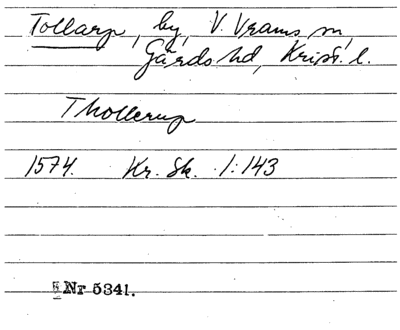 Tollarp, by, V. Vrams sn,
Gärds hd, Krist. l.
Thollerup
1574. Kr. Sk. 1:143
Nr 5341.